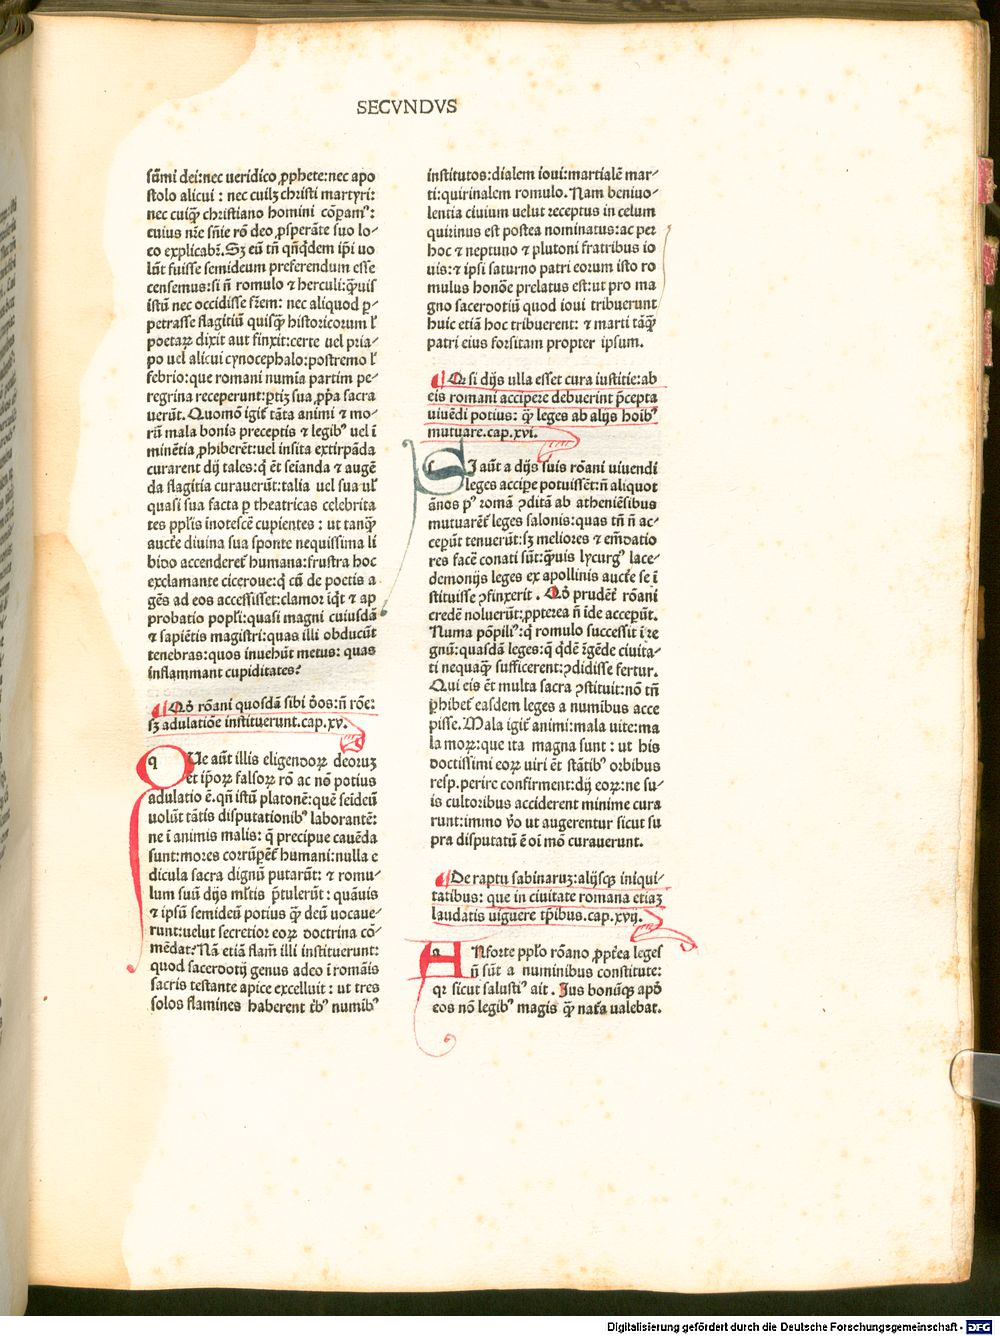 SECVNDVS
sūmi dei:nec ueridico ꝓphete:nec apo
stolo alicui : nec cuilꝫ christi martyri:
nec cuiqꝫ christiano homini cōpamꝰ:
cuius nr̄e sn̄ie rō deo ꝓsperāte suo lo-
co explicabit̄. Sꝫ eū tn̄ qn̄qdem ip̄i uo
lūt fuisse semideum preferendum esse
censemus:si n̄ romulo ⁊ herculi:qͣuis
istū nec occidisse fr̄em: nec aliquod ꝑ-
petrasse flagitiū quisqꝫ historicorum ł
poetaꝝ dixit aut finxit:certe uel pria-
po uel alicui cynocephalo:postremo ł
febrio:que romani numīa partim pe-
regrina receperunt:ꝑtiꝫ sua ꝓpͥa sacra
uerūt. Quomō igit̄ tāta animi ⁊ mo-
rū mala bonis preceptis ⁊ legibꝰ uel ī
minētia ꝓhiberēt:uel insita extirpāda
curarent dij tales:qͥ et̄ seīanda ⁊ augē
da flagitia curauerūt:talia uel sua uł
quasi sua facta ꝑ theatricas celebrita
tes ppl̄is inotescē cupientes : ut tanqꝫ
auctē diuina sua sponte nequissima li
bido accenderet̄ humana:frustra hoc
exclamante cicerone:qͥ cū de poetis a
gēs ad eos accessisset:clamor iqͥt ⁊ ap
probatio popl̄i:quasi magni cuiusdā
⁊ sapiētis magistri:quas illi obducūt
tenebras:quos inuehūt metus: quas
inflammant cupiditates?
Qď rōani quosdā sibi ďos:n̄ rōe:
sꝫ adulatiōe instituerunt.cap.xv.
QVe aūt illis eligendoꝝ deoruꝫ
et ip̄oꝝ falsoꝝ rō ac nō potius
adulatio ē. qn̄ istū platonē:quē seīdeū
uolūt tātis disputationibꝰ laborantē:
ne ī animis malis: q̄ precipue cauēda
sunt:mores corrūpēt̄ humani:nulla e
dicula sacra dignū putarūt: ⁊ romu-
lum suū dijs ml̄tis p̄tulerūt : quāuis
⁊ ipsū semideū potius qͣꝫ deū uocaue-
runt:uelut secretioꝛ eoꝝ doctrina cō-
mēdat:Nā etiā flam̄ illi instituerunt:
quod sacerdotij genus adeo ī romāis
sacris testante apice excelluit : ut tres
solos flamines haberent tͥbꝰ numibꝰ
institutos:dialem ioui:martialē mar-
ti:quirinalem romulo. Nam beniuo-
lentia ciuium uelut receptus in celum
quirinus est postea nominatus:ac per
hoc ⁊ neptuno ⁊ plutoni fratribus io
uis:⁊ ipsi saturno patri eorum isto ro
mulus honōe prelatus est:ut pro ma
gno sacerdotiū quod ioui tribuerunt
huic etiā hoc tribuerent: ⁊ marti tāqꝫ
patri eius forsitam propter ipsum.
Qr si dijs ulla esset cura iustitie:ab
eis romani accipere debuerint p̄cepta
uiuēdi potius: qͣꝫ leges ab alijs hoībꝰ
mutuare.cap.xvi.
SI aūt a dijs suis rōani uiuendi
leges accipe potuissēt:n̄ aliquot
ānos pꝰ romā ꝯditā ab atheniēsibus
mutuarēt̄ leges salonis:quas tn̄ n̄ ac-
cepūt tenuerūt:sꝫ meliores ⁊ emēdatio
res facē conati sūt:qͣuis lycurgꝰ lace-
demonijs leges ex apollinis auctē se ī
stituisse ꝯfinxerit . Qď prudēt̄ rōani
credē noluerūt:ꝓpterea n̄ īde accepūt.
Numa pōpiliꝰ:qͥ romulo successit ī re
gnū:quasdā leges:q̄ qͥdē īgēde ciuita-
ti nequaqꝫ sufficerent:ꝯdidisse fertur.
Qui eis et̄ multa sacra ꝯstituit:nō tn̄
ꝑhibet̄ easdem leges a numibus acce
pisse. Mala igit̄ animi:mala uite:ma
la moꝝ:que ita magna sunt : ut his
doctissimi eoꝝ uiri et̄ stātibꝰ orbibus
resp.perire confirment:dij eoꝝ:ne su-
is cultoribus acciderent minime cura
runt:immo ūo ut augerentur sicut su
pra disputatū ē oī mō curauerunt.
De raptu sabinaruꝫ:alijsqꝫ iniqui-
tatibus: que in ciuitate romana etiaꝫ
laudatis uiguere tp̄ibus.cap.xvij.
ANforte pplo̅ rōano ꝓpt̄ea leges
n̄ sūt a numinibus constitute:
qꝛ sicut salustiꝰ ait . Jus bonūqꝫ apď
eos nō legibꝰ magis qͣꝫ nat̄a ualebat.
Digitalisierung gefördert durch die Deutsche Forschungsgemeinschaft - DFG